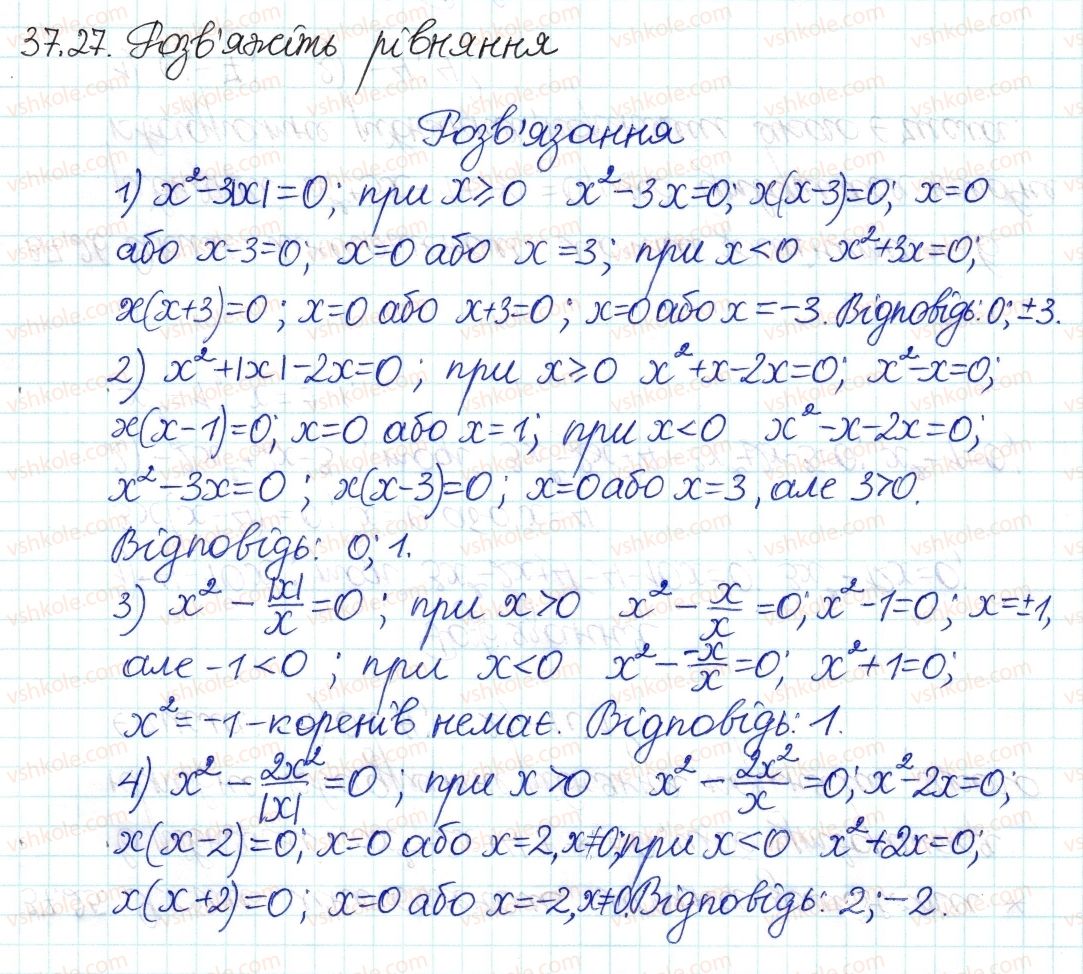 37.27. Розв'яжіть рівняння
Розв'язання
1) x²-3|x|=0; при x≥0 x²-3x=0; x(x-3)=0; x=0
або x-3=0; x=0 або x=3; при x<0 x²+3x=0;
x(x+3)=0; x=0 або x+3=0; x=0 або x=-3. Відповідь: 0; ±3.
2) x²+|x|-2x=0; при x≥0 x²+x-2x=0; x²-x=0;
x(x-1)=0; x=0 або x=1; при x<0 x²-x-2x=0;
x²-3x=0; x(x-3)=0; x=0 або x=3, але 3>0.
Відповідь: 0; 1.
3) x² - |x|/x = 0; при x>0 x² - x/x = 0; x²-1=0; x=±1,
але -1<0; при x<0 x² - -x/x = 0; x²+1=0;
x²=-1 - коренів немає. Відповідь: 1.
4) x² - 2x²/|x| = 0; при x>0 x² - 2x²/x = 0; x²-2x=0;
x(x-2)=0; x=0 або x=2, x≠0; при x<0 x²+2x=0;
x(x+2)=0; x=0 або x=-2, x≠0. Відповідь: 2; -2.